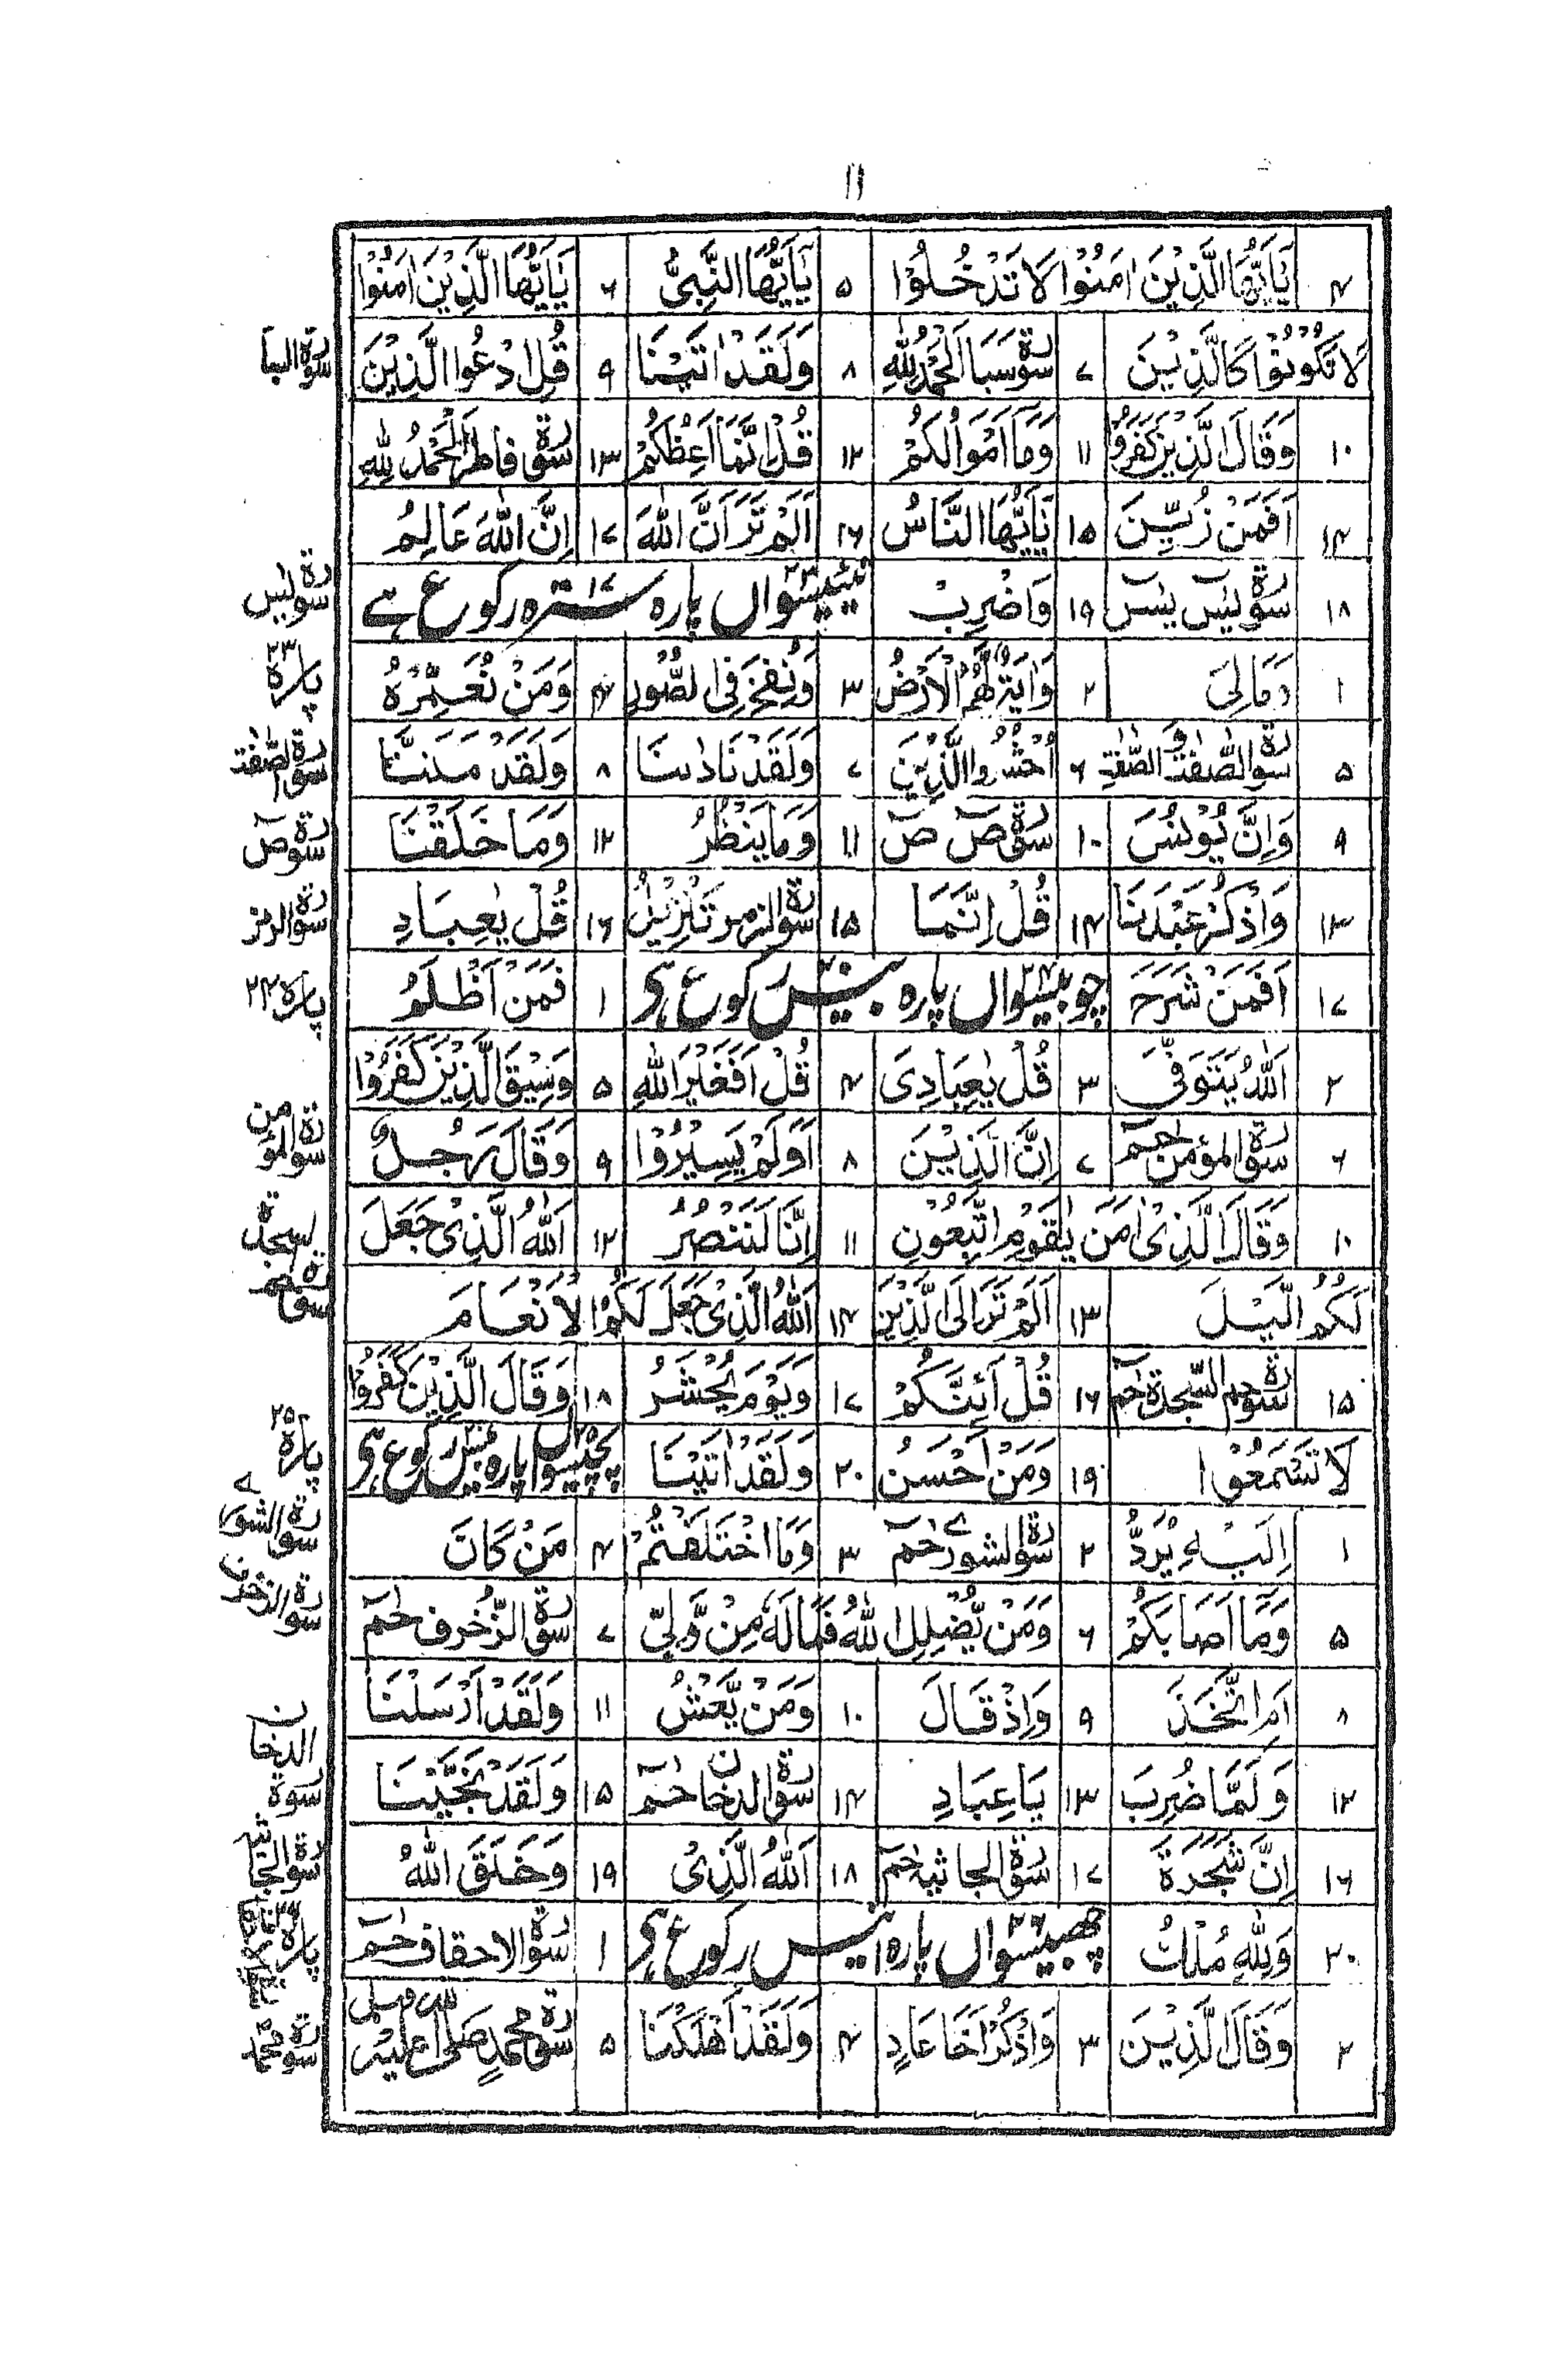 ۱۱
۴ یٰٓاَیُّهَا الَّذِیْنَ اٰمَنُوْا لَا تَدْخُلُوْا ۵ یٰٓاَیُّهَا النَّبِیُّ ۶ یٰٓاَیُّهَا الَّذِیْنَ اٰمَنُوْا
لَا تَكُوْنُوْا كَالَّذِیْنَ ۷ سورة سَبَا اَلْحَمْدُ لِلّٰهِ ۸ وَلَقَدْ اٰتَیْنَا ۹ قُلِ ادْعُوا الَّذِیْنَ سورة السبا
۱۰ وَقَالَ الَّذِیْنَ كَفَرُوْا ۱۱ وَمَا اَمْوَالُكُمْ ۱۲ قُلْ اِنَّمَا اَعِظُكُمْ ۱۳ سورة فاطر اَلْحَمْدُ لِلّٰهِ
۱۴ اَفَمَنْ زُیِّنَ ۱۵ یٰٓاَیُّهَا النَّاسُ ۱۶ اَلَمْ تَرَ اَنَّ اللّٰهَ ۱۷ اِنَّ اللّٰهَ عَالِمُ
۱۸ سورة یٰسٓ یٰسٓ ۱۹ وَاضْرِبْ تیئیسواں ۲۳ پارہ سترہ ۱۷ رکوع ہے سورة یٰس
۱ وَمَا لِیَ ۲ وَاٰیَةٌ لَّهُمُ الْاَرْضُ ۳ وَنُفِخَ فِی الصُّوْرِ ۴ وَمَنْ نُّعَمِّرْهُ پارہ ۲۳
۵ سورة الصّٰفّٰت وَالصّٰفّٰتِ ۶ اُحْشُرُوا الَّذِیْنَ ۷ وَلَقَدْ نَادٰىنَا ۸ وَلَقَدْ مَنَنَّا سورة الصّٰفّٰت
۹ وَاِنَّ یُوْنُسَ ۱۰ سورة صٓ صٓ ۱۱ وَمَا یَنْظُرُ ۱۲ وَمَا خَلَقْنَا سورة صٓ
۱۳ وَاذْكُرْ عَبْدَنَا ۱۴ قُلْ اِنَّمَا ۱۵ سورة الزمر تَنْزِیْلُ ۱۶ قُلْ یٰعِبَادِ سورة الزمر
۱۷ اَفَمَنْ شَرَحَ چوبیسواں ۲۴ پارہ بیس ۲۰ رکوع ہی ۱ فَمَنْ اَظْلَمُ پارہ ۲۴
۲ اَللّٰهُ یَتَوَفَّى ۳ قُلْ یٰعِبَادِیَ ۴ قُلْ اَفَغَیْرَ اللّٰهِ ۵ وَسِیْقَ الَّذِیْنَ كَفَرُوْا
۶ سورة المؤمن حٰمٓ ۷ اِنَّ الَّذِیْنَ ۸ اَوَلَمْ یَسِیْرُوْا ۹ وَقَالَ رَجُلٌ سورة المؤمن
۱۰ وَقَالَ الَّذِیْ اٰمَنَ یٰقَوْمِ اتَّبِعُوْنِ ۱۱ اِنَّا لَنَنْصُرُ ۱۲ اَللّٰهُ الَّذِیْ جَعَلَ
لَكُمُ الَّیْلَ ۱۳ اَلَمْ تَرَ اِلَى الَّذِیْنَ ۱۴ اَللّٰهُ الَّذِیْ جَعَلَ لَكُمُ الْاَنْعَامَ سورة حٰم السجدة
۱۵ سورة حٰم السَّجْدَة حٰمٓ ۱۶ قُلْ اَئِنَّكُمْ ۱۷ وَیَوْمَ یُحْشَرُ ۱۸ وَقَالَ الَّذِیْنَ كَفَرُوْا
لَا تَسْمَعُوْا ۱۹ وَمَنْ اَحْسَنُ ۲۰ وَلَقَدْ اٰتَیْنَا پچیسواں ۲۵ پارہ بیس ۲۰ رکوع ہی پارہ ۲۵
۱ اِلَیْهِ یُرَدُّ ۲ سورة الشورے حٰمٓ ۳ وَمَا اخْتَلَفْتُمْ ۴ مَنْ كَانَ سورة الشورے
۵ وَمَا اَصَابَكُمْ ۶ وَمَنْ یُّضْلِلِ اللّٰهُ فَمَا لَهٗ مِنْ وَّلِیٍّ ۷ سورة الزُّخرف حٰمٓ سورة الزخرف
۸ اَمِ اتَّخَذَ ۹ وَاِذْ قَالَ ۱۰ وَمَنْ یَّعْشُ ۱۱ وَلَقَدْ اَرْسَلْنَا
۱۲ وَلَمَّا ضُرِبَ ۱۳ یَاعِبَادِ ۱۴ سورة الدخان حٰمٓ ۱۵ وَلَقَدْ نَجَّیْنَا سورة الدخان
۱۶ اِنَّ شَجَرَةَ ۱۷ سورة الجاثیه حٰمٓ ۱۸ اَللّٰهُ الَّذِیْ ۱۹ وَخَلَقَ اللّٰهُ سورة الجاثیه
۲۰ وَلِلّٰهِ مُلْكُ چھبیسواں ۲۶ پارہ رکوع ہی ۱ سورة الاحقاف حٰمٓ پارہ
۲ وَقَالَ الَّذِیْنَ ۳ وَاذْكُرْ اَخَا عَادٍ ۴ وَلَقَدْ اَهْلَكْنَا ۵ سورة محمدٍ صلی علیه سورة محمد